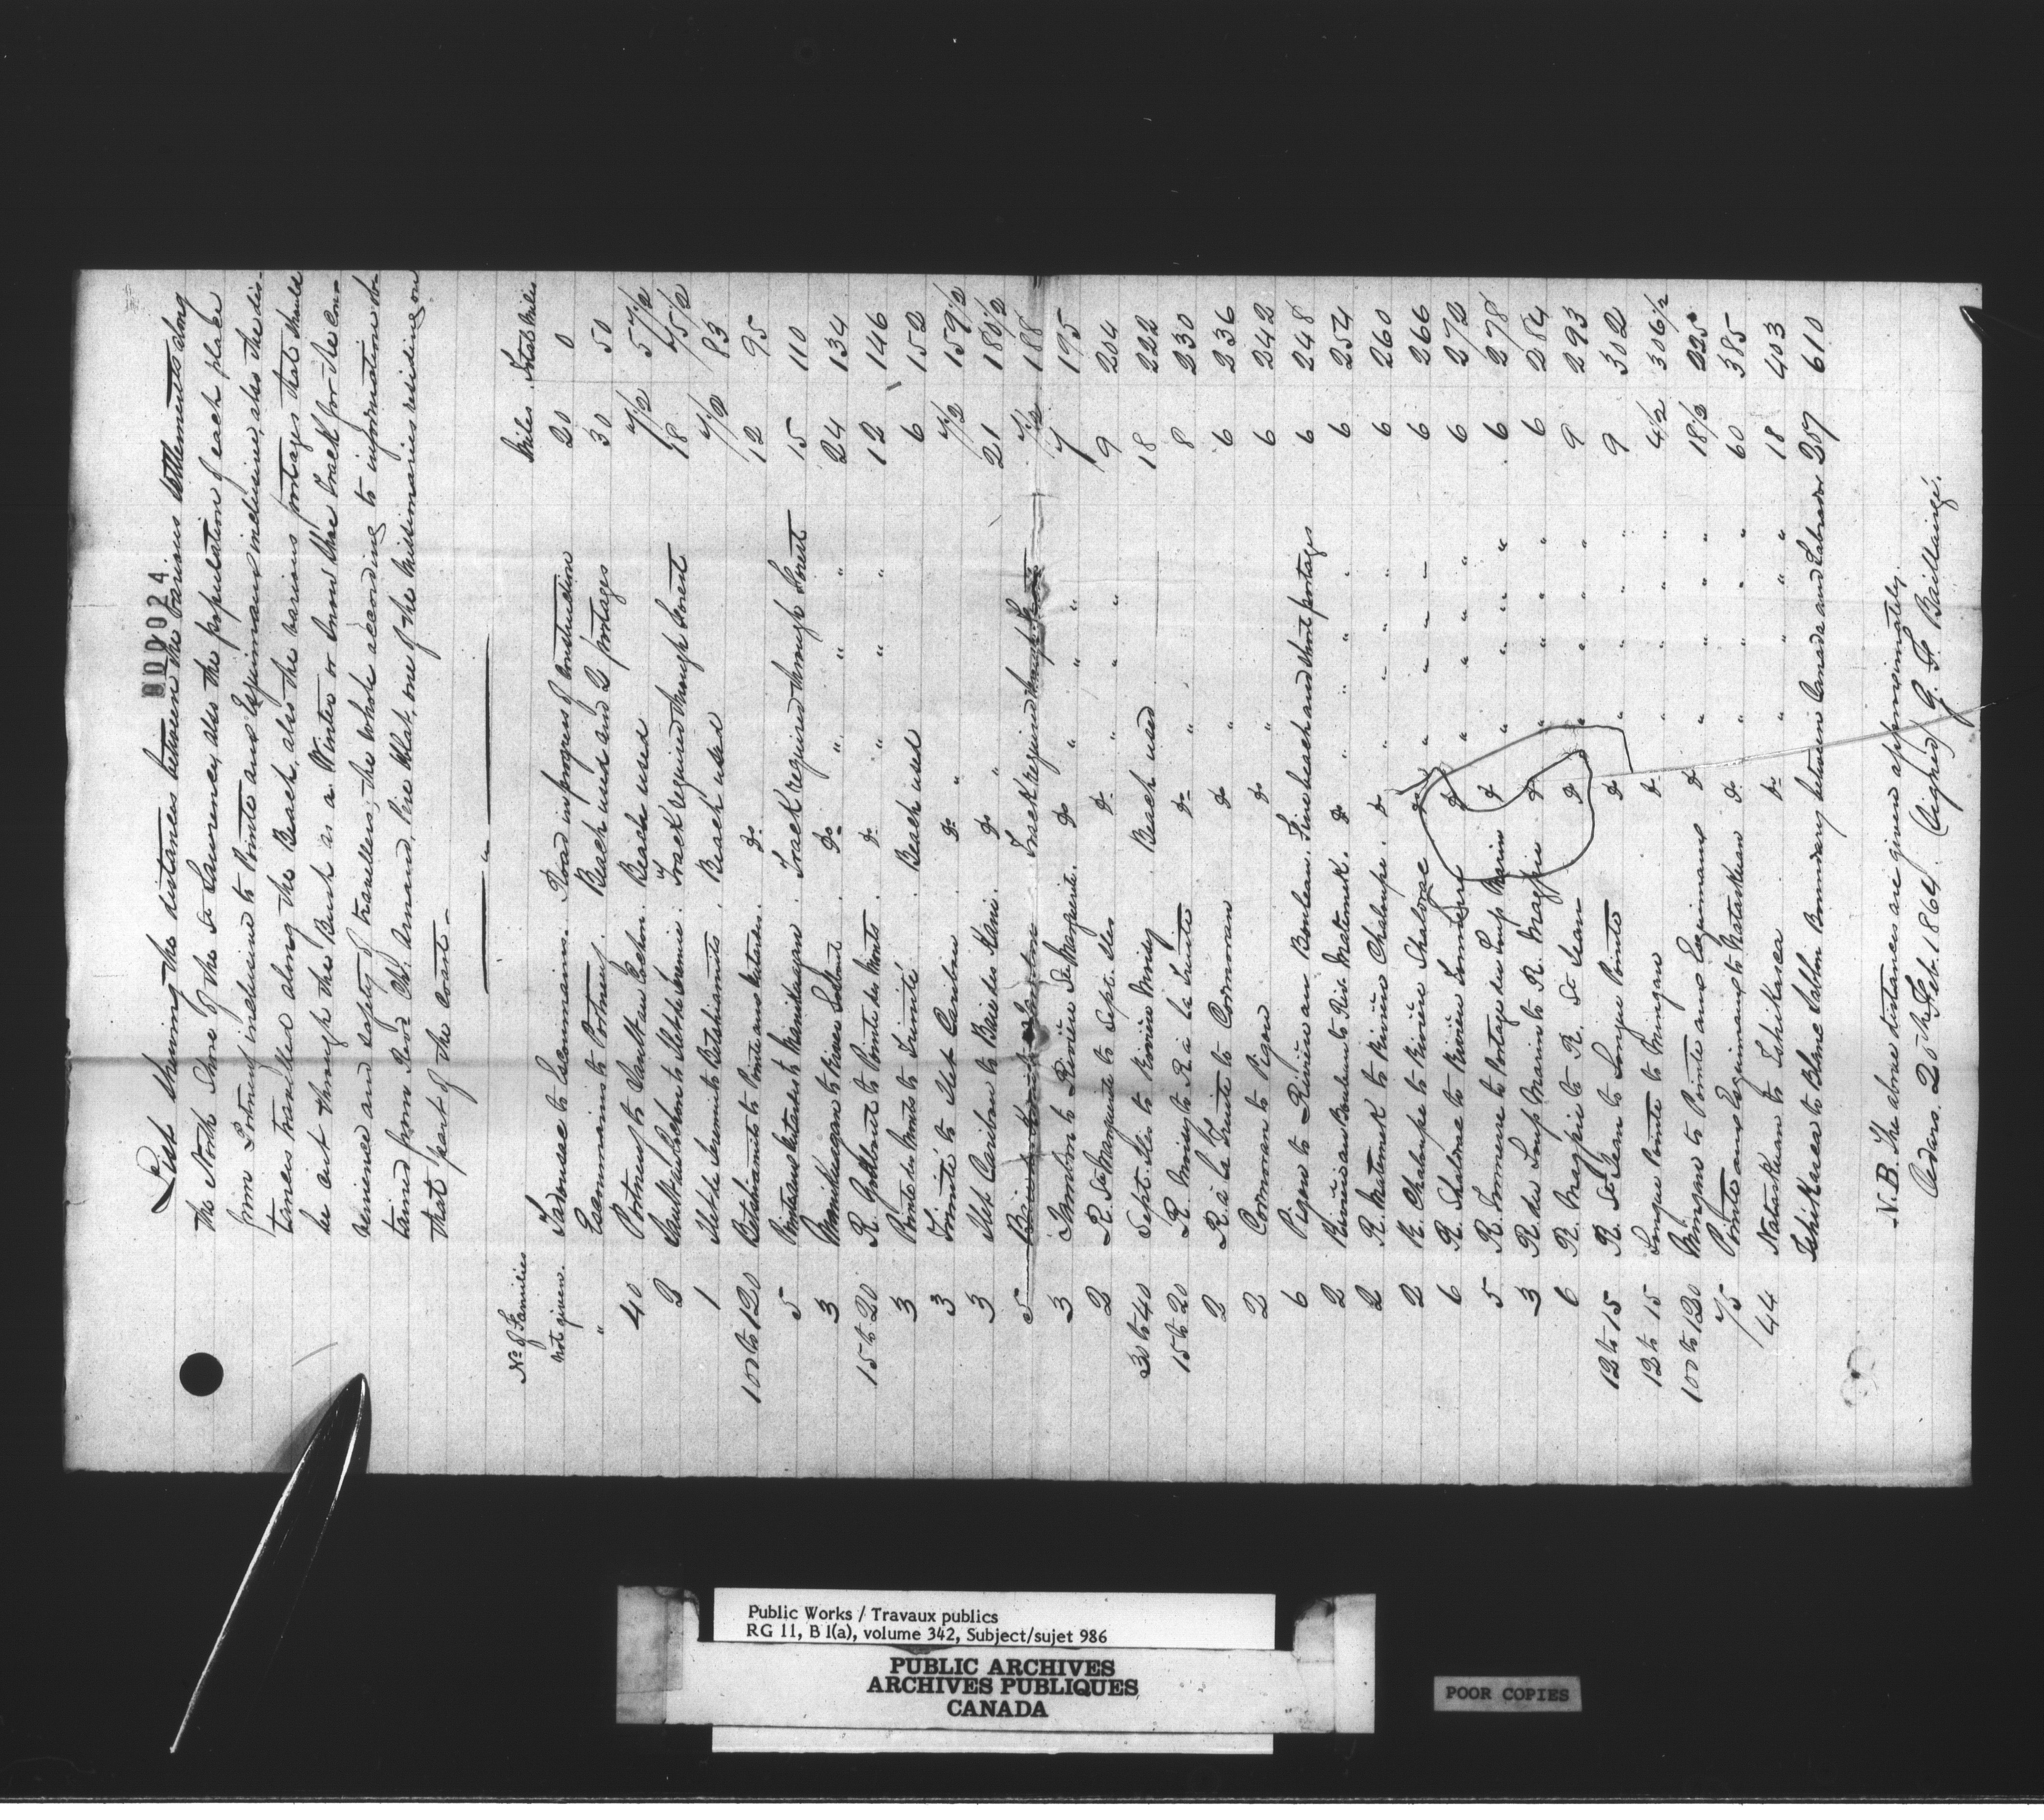 000024
List shewing the distances between the various settlements along
the North Shore of the St Lawrence, also the population of each place
from Portneuf inclusive to Pointe aux Esquimaux inclusive, also the dis-
tances travelled along the Beach, also the various portages that should
be cut through the Bush as a Winter or Snow Shoe Track for the Con-
venience and safety of travellers, the whole according to information ob-
tained from Revd Ch. Arnaud, Père Oblat, one of the Missionaries residing on
that part of the Coast.
No of Families Miles. Total Miles
not given. Tadousac to Escoumains. Road in progress of Construction 20 0
" Escoumains to Portneuf. Beach used and 2 portages 30 50
40 Portneuf to Sault au Cochon. Beach used 7½ 57½
2 Sault au Cochon to Ilets de Jeremie. Track required through Forest 18 75½
1 Ilet de Jeremie to Betshiamits. Beach used 7½ 83
100 to 120 Betshiamits to Pointe aux Outardes. do 12 95
5 Pointe aux Outardes to Manikuagan. Track required through Forest 15 110
3 Manikuagan to Rivière do " " " 24 134
15 to 20 R. to Pointe des Monts. do " " " 12 146
3 Pointe des Monts to Trinité. Beach used 6 152
3 Trinité to Ilet Caribou. do " 7½ 159½
3 Ilet Caribou to Baie des do " 21 180½
5 Track required through 7½ 188
3 to Rivière St Marguerite. do " " " 7 195
2 R. St Marguerite to Sept Iles do " " " 9 204
30 to 40 Sept Iles to Rivière Moisy. Beach used 18 222
15 to 20 R. Moisy to R. à la Truite do " 8 230
2 R. à la Truite to Cormoran do " 6 236
2 Cormoran to Pigou do " 6 242
6 Pigou to Rivière au Bouleau. Fine beach and short portages 6 248
2 Rivière au Bouleau to Riv. Matamek. do " " " " 6 254
2 R. Matamek to Rivière Chaloupe. do " " " " 6 260
2 R. Chaloupe to Rivière Shaldrac do " " " " 6 266
6 R. Shaldrac to Rivière Tonnerre do " " " " 6 272
5 R. Tonnerre to Portage du Loup Marin do " " " " 6 278
3 R. du Loup Marin to R. Magpie do " " " " 6 284
6 R. Magpie to R. St Jean do " " " " 9 293
12 to 15 R. St Jean to Longue Pointe do " " " " 9 302
12 to 15 Longue Pointe to Mingan do " " " " 4½ 306½
100 to 120 Mingan to Pointe aux Esquimaux do " " " " 18½ 325
75 Pointe aux Esquimaux to Nataskuan do " " " " 60 385
44 Nataskuan to do " " " " 18 403
to Blanc Sablon Boundary between Canada and Labrador 207 610
N.B. The above distances are given approximately.
Cedars. 20th Feb. 1864. (Signed) G. F. Baillairgé.
Public Works / Travaux publics
RG 11, B 1(a), volume 342, Subject/sujet 986
PUBLIC ARCHIVES
ARCHIVES PUBLIQUES
CANADA
POOR COPIES